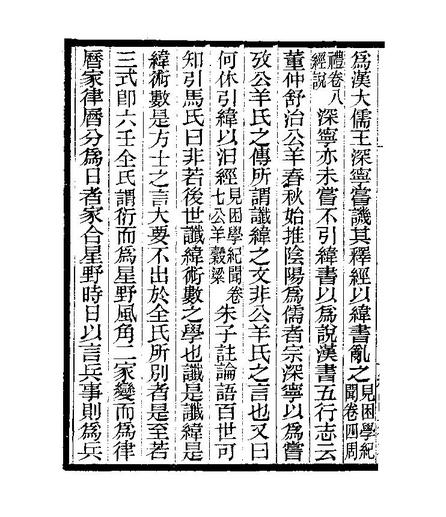 爲漢大儒王深寧嘗譏其釋經以緯書亂之見困學紀聞卷四周
禮卷八經說深寧亦未嘗不引緯書以爲說漢書五行志云
董仲舒治公羊春秋始推陰陽爲儒者宗深寧以爲嘗
攷公羊氏之傳所謂讖緯之文非公羊氏之言也又曰
何休引緯以汨經見困學紀聞卷七公羊穀梁朱子註論語百世可
知引馬氏曰非若後世讖緯術數之學也讖是讖緯是
緯術數是方士之言大要不出於全氏所別者是至若
三式卽六壬全氏謂衍而爲星野風角二家變而爲律
曆家律曆分爲日者家合星野時日以言兵事則爲兵